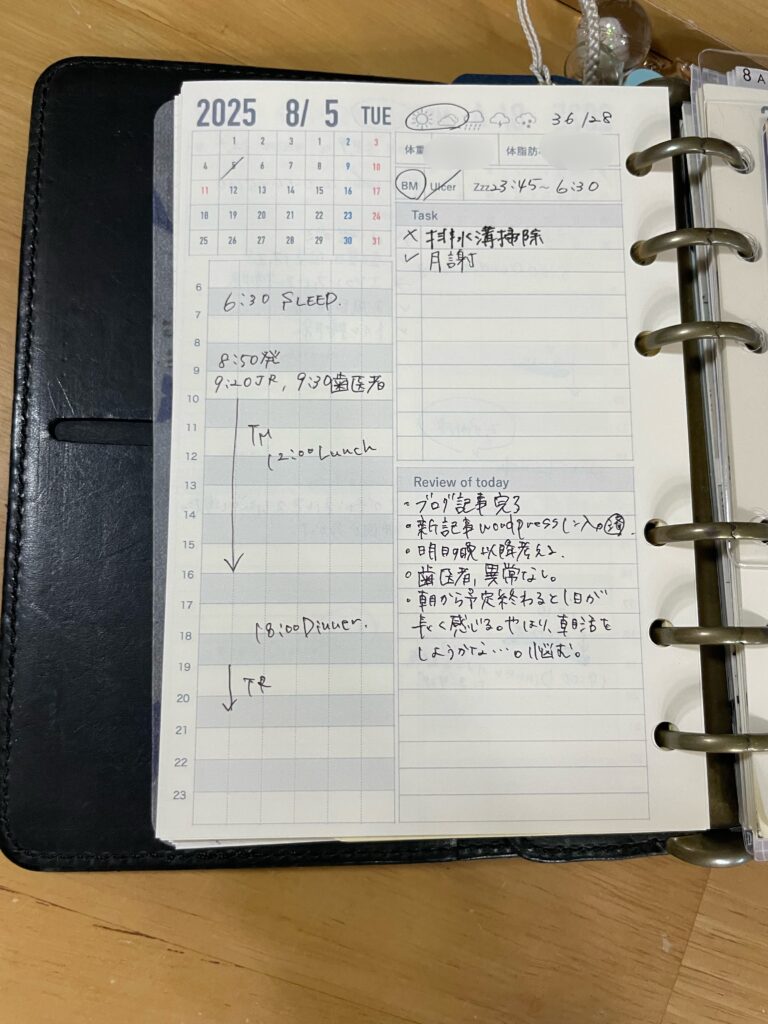 8 A
2025 8/ 5 TUE 36/28
1 2 3 1 2 3
4 5 6 7 8 9 10
11 12 13 14 15 16 17
18 19 20 21 22 23 24
25 26 27 28 29 30 31
体重 体脂肪
BM Ulcer Zzz 23:45~6:30
Task
× 排水溝掃除
✓ 月謝
6
6:30 SLEEP.
7
8
8:50発
9
9:20JR, 9:30歯医者
10
11
TM
12
12:00Lunch
13
14
15
16
17
18:00Dinner.
18
19
TR
20
21
22
23
Review of today
・ブログ記事完了
・新記事wordpressに入 済.
・明日晩以降考える.
・歯医者,異常なし。
・朝から予定終わると1日が
長く感じる。やはり、朝活を
しようかな…。悩む。